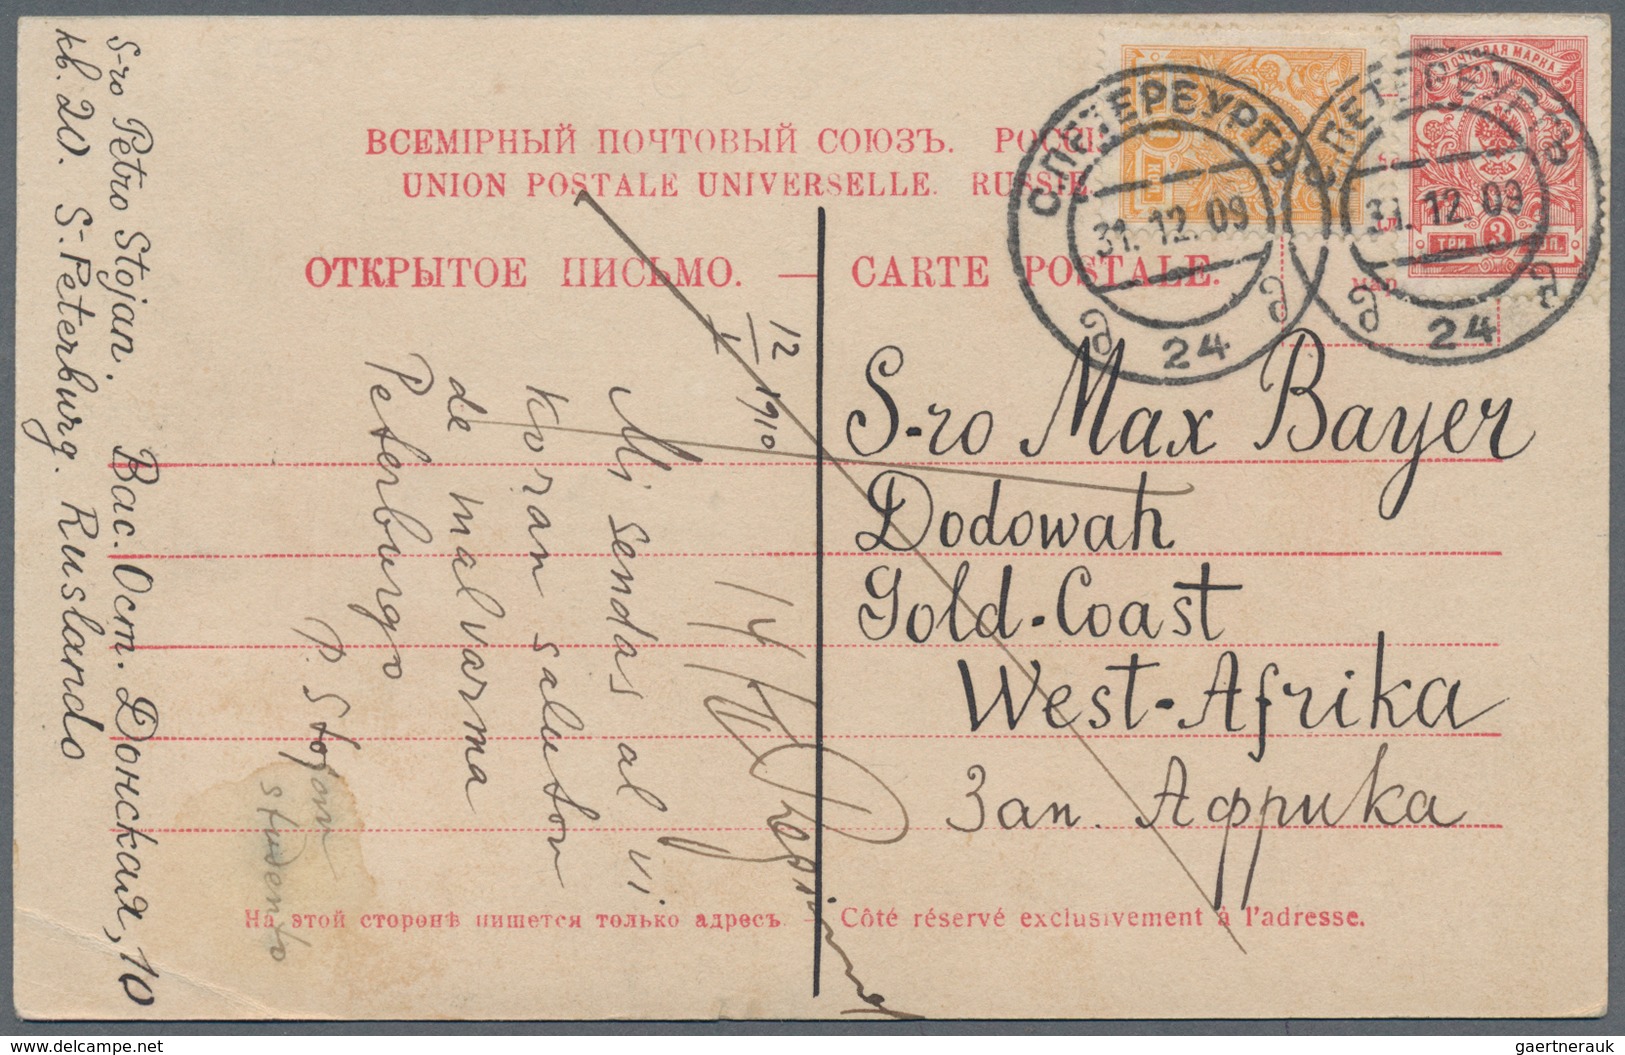 ВСЕМІРНЫЙ ПОЧТОВЫЙ СОЮЗЪ. РОССІ
UNION POSTALE UNIVERSELLE. RUSSIE
ОТКРЫТОЕ ПИСЬМО. — CARTE POSTALE.
ПОЧТОВАЯ МАРКА
ТРИ 3 КОП.
С.ПЕТЕРБУРГЪ
31.12.09
24
С.ПЕТЕРБУРГЪ
31.12.09
24
мар
S-ro Max Bayer
Dodowah
Gold-Coast
West-Afrika
Зап. Африка
S-ro Petro Stojan.
Вас. Ост. Донская, 10
кв. 20. S-Peterburg. Ruslando
12
I 1910
Mi sendas al vi
koran saluton
de malvarma
Peterburgo
P. Stojan
studento
14/IV
На этой сторонѣ пишется только адресъ. — Côté réservé exclusivement à l'adresse.
gaertnerauk
delcampe.net